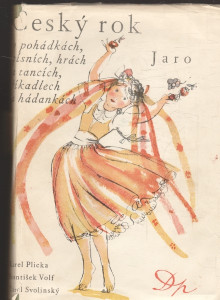 Český rok
pohádkách,
ísních, hrách
tancích,
íkadlech
hádankách
Jaro
arel Plicka
antišek Volf
arel Svolinský
Dp